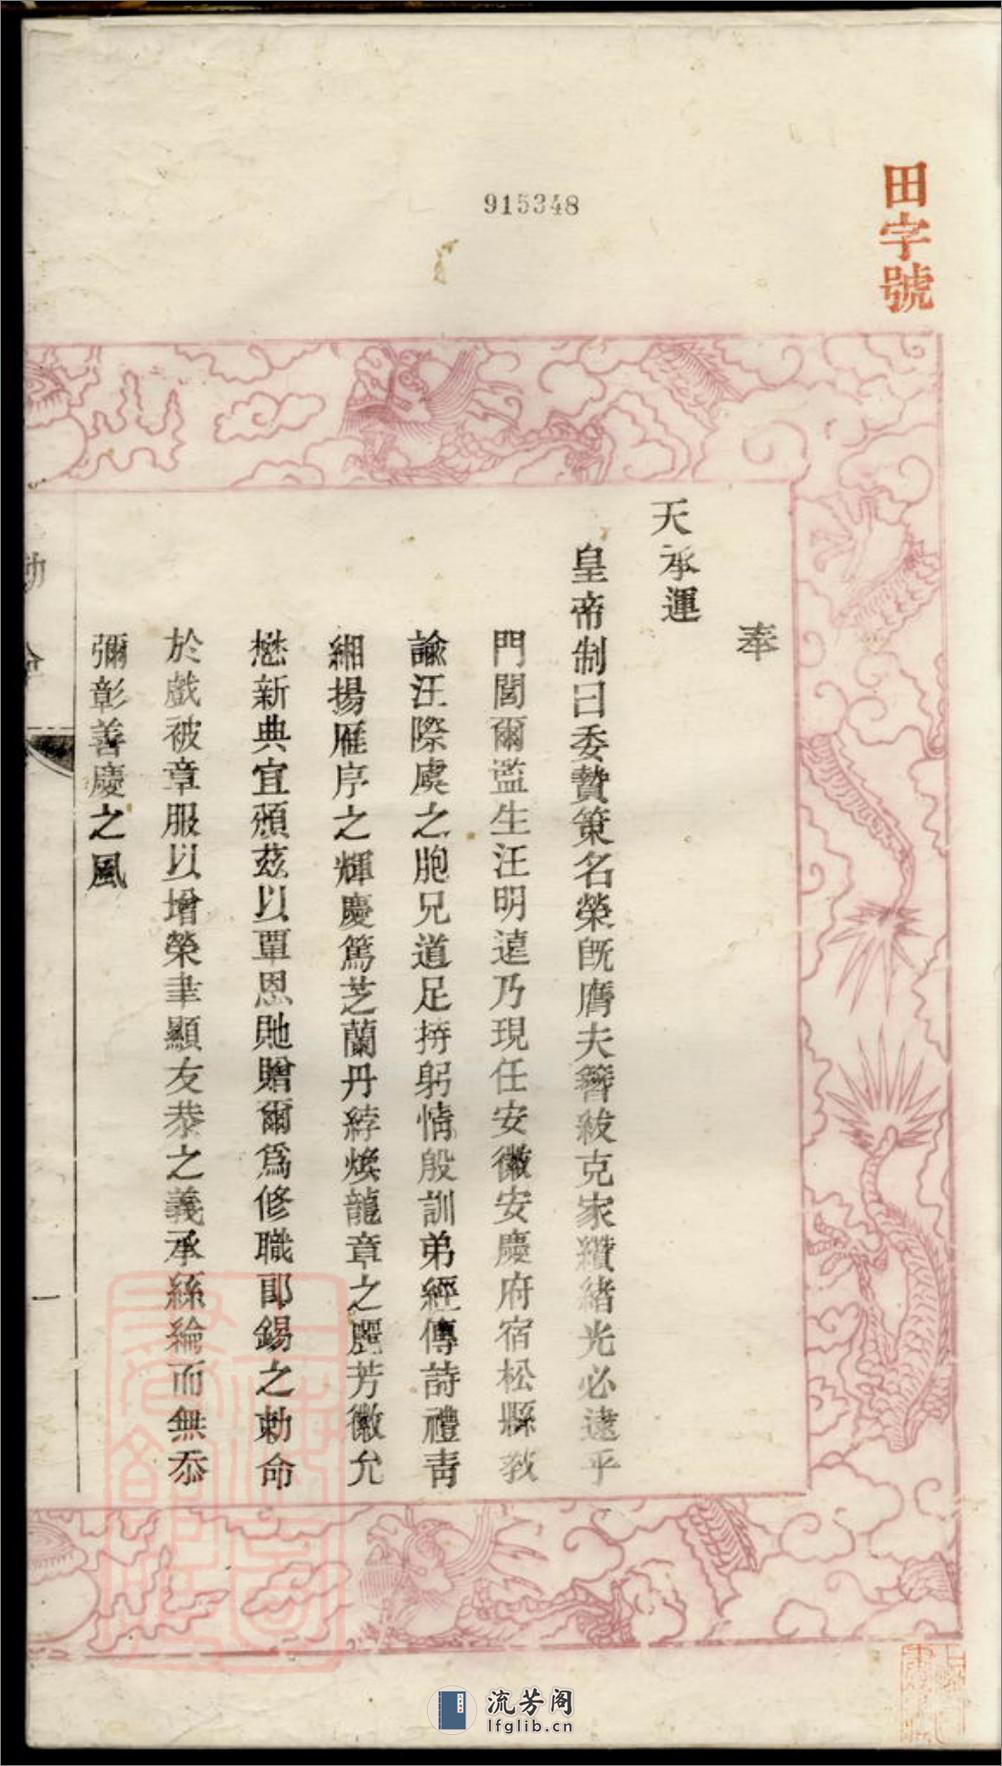 田字號
915348
奉
天承運
皇帝制曰委贄策名榮旣膺夫簪紱克家纘緒光必逮乎
門閭爾監生汪明遠乃現任安徽安慶府宿松縣敎
諭汪際虞之胞兄道足持躬情殷訓弟經傳詩禮靑
緗揚雁序之輝慶篤芝蘭丹綍煥龍章之麗芳徽允
懋新典宜頒茲以覃恩貤贈爾爲修職郎錫之勅命
於戲被章服以增榮聿顯友恭之義承絲綸而無忝
彌彰善慶之風
一
流芳阁
lfglib.cn